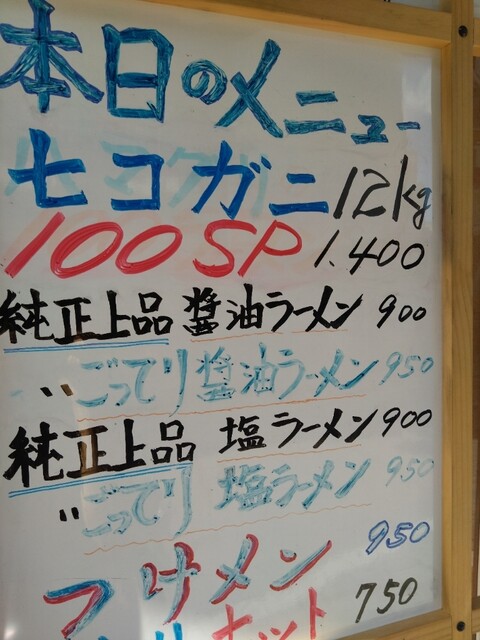 本日のメニュー
セコガニ 12kg
100SP 1.400
純正上品 醤油ラーメン 900
〃 ごってり醤油ラーメン 950
純正上品 塩ラーメン 900
〃 ごってり 塩ラーメン 950
つけメン 950
ホット 750